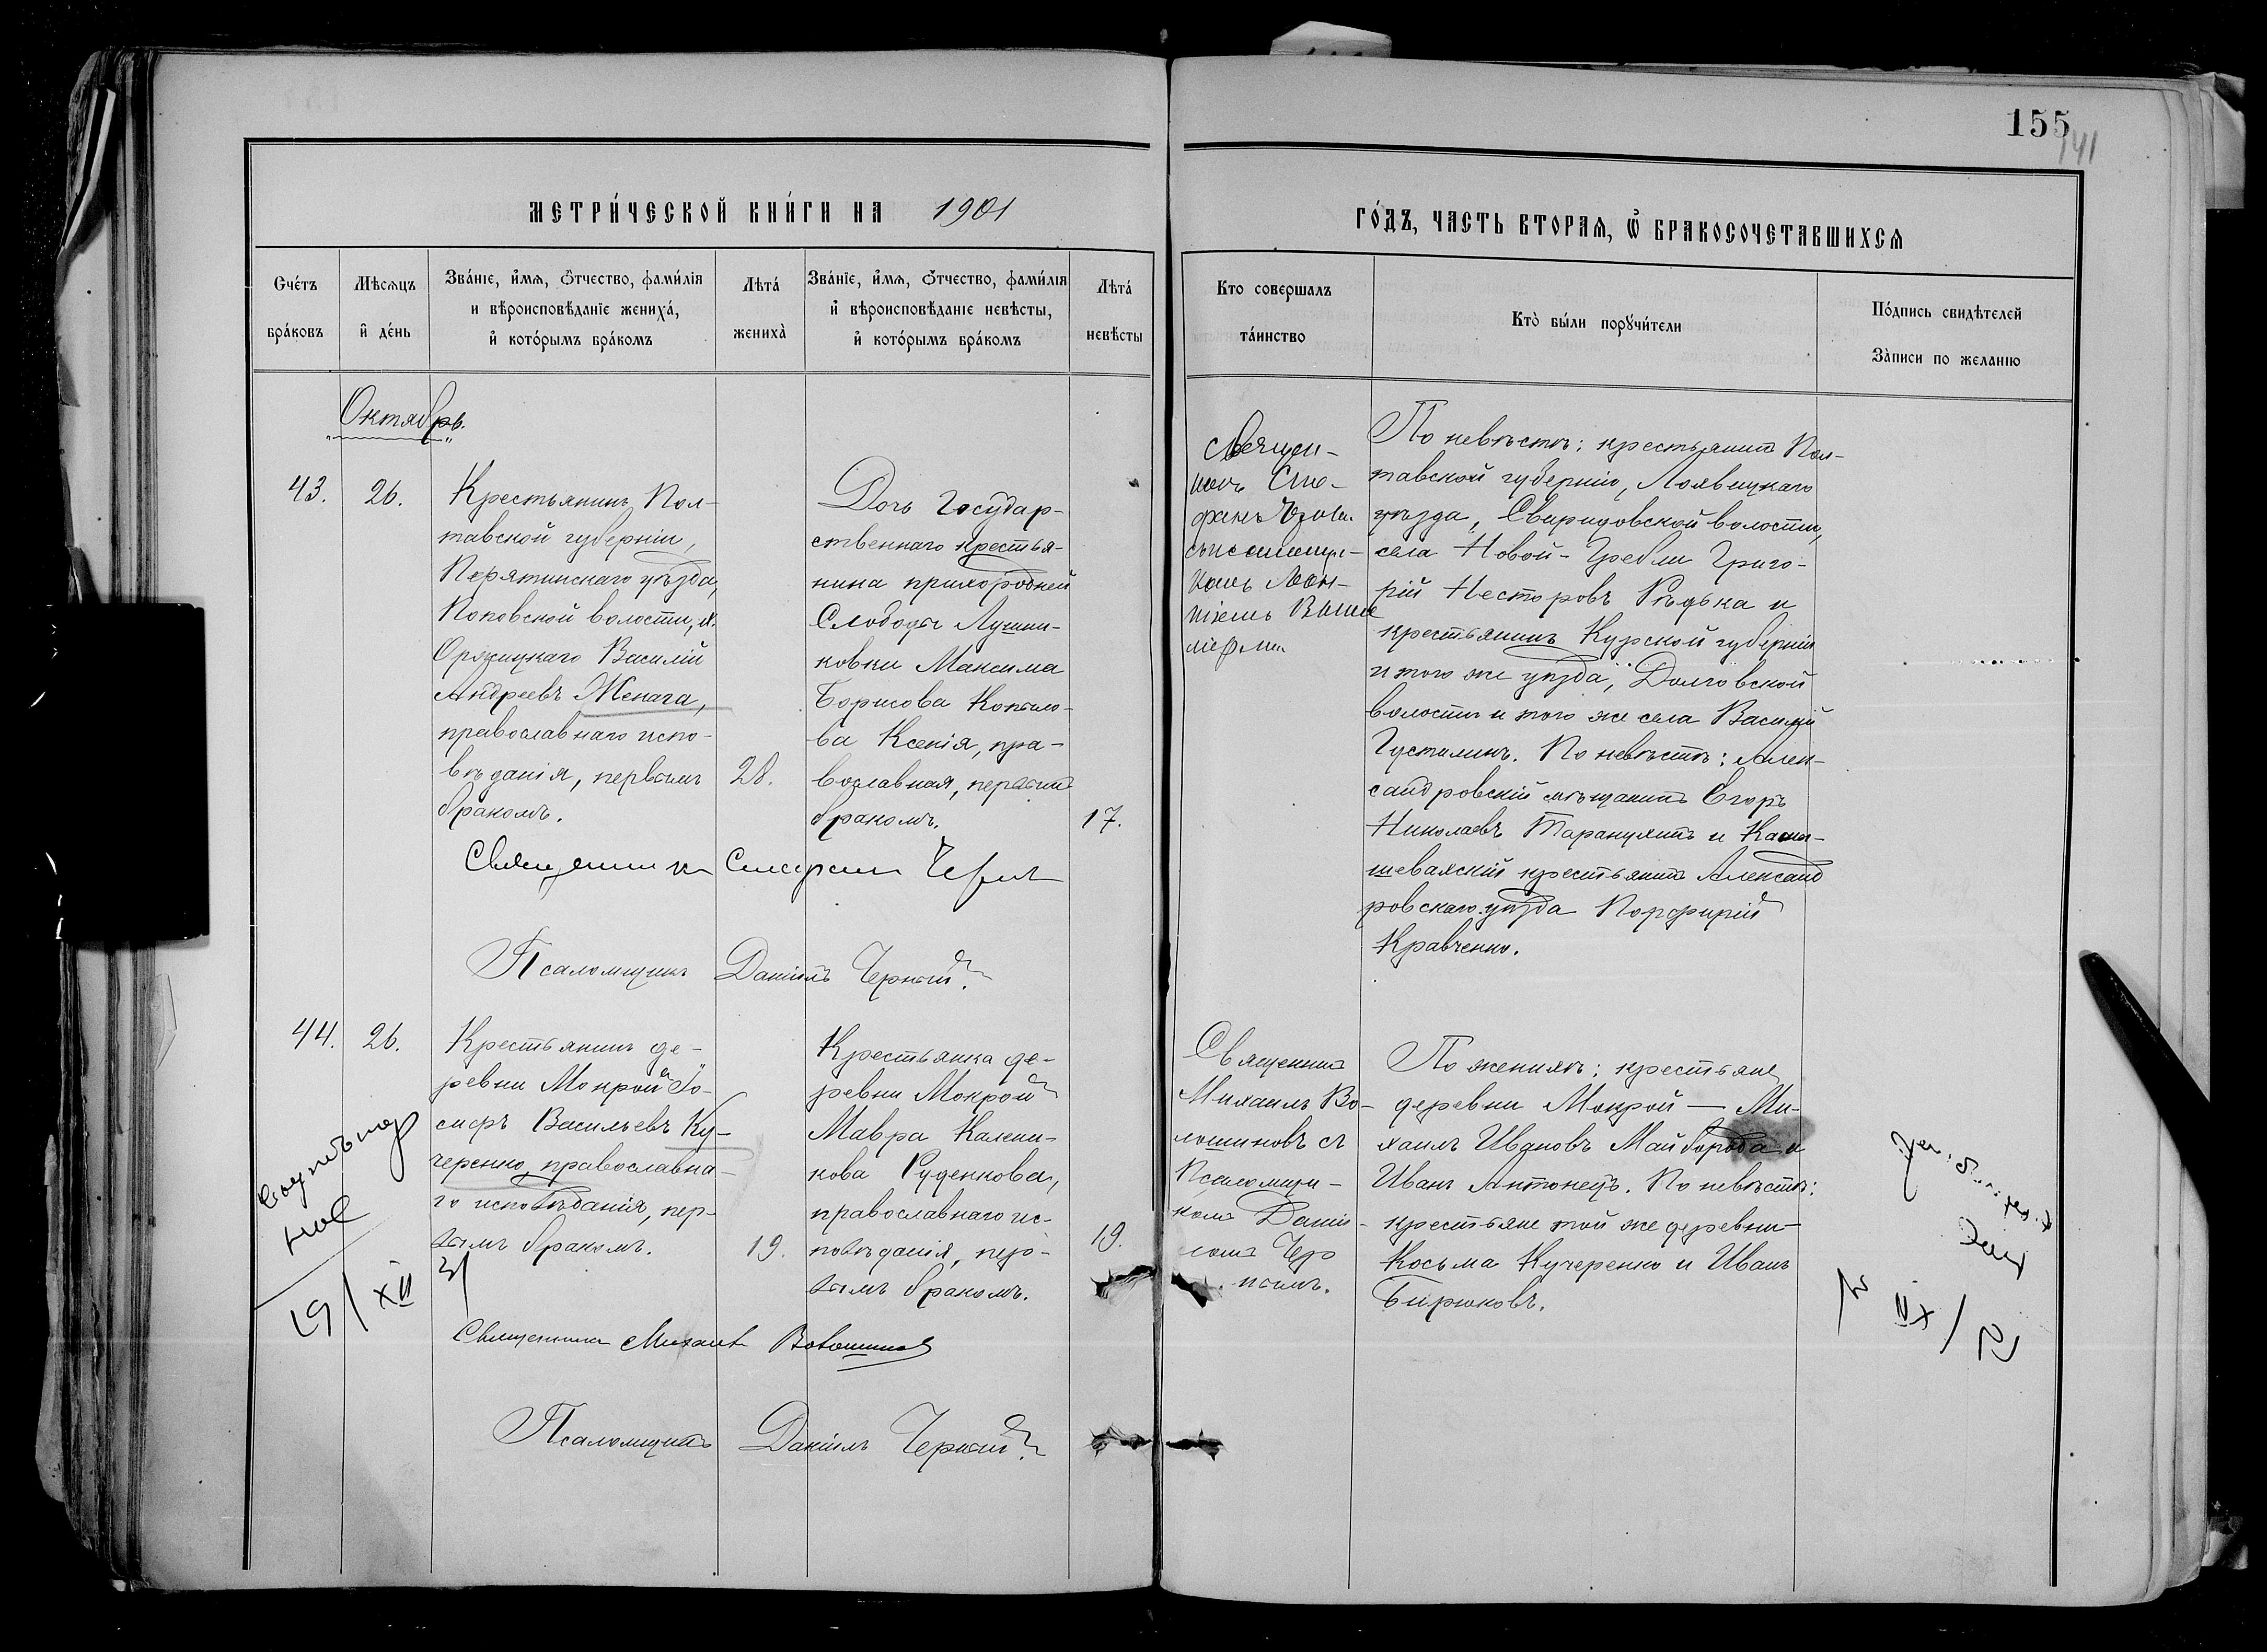 155
141
МЕТРИ́ЧЕСКОЙ КНИ́ГИ НА 1901
ГО́ДЪ, ЧАСТЬ ВТОРАѦ, Ѡ҆ БРАКОСОЧЕТАВШИХСѦ
Сче́тъ
бра́ковъ
Мѣ́сѧцъ
и҆ де́нь
Зва́нїе, и҆́мѧ, ѻ҆́тчество, фами́лїѧ
и вѣроисповѣ́данїе жениха̀,
и҆ кото́рымъ бра́комъ
Лѣта́
жениха̀
Зва́нїе, и҆́мѧ, ѻ҆́тчество, фами́лїѧ
и҆ вѣроисповѣ́данїе невѣ́сты,
и҆ кото́рымъ бра́комъ
Лѣта́
невѣ́сты
Кто совершалъ
та́инство
Кто̀ бы́ли порꙋчи́тели
По́дпись свидѣ́телей
За̀писи по желанію
Октябрь.
43.
26.
Крестьянинъ Пол-
тавской губерніи,
Пирятинскаго уѣзда,
Поповской волости, х.
Оржицкаго Василій
Андреевъ Женага,
православнаго испо-
вѣданія, первымъ
бракомъ.
28.
Дочь Государ-
ственнаго крестья-
нина пригородней
Слободы Лушни-
ковки Максима
Борисова Копыло-
ва Ксенія, пра-
вославная, первымъ
бракомъ.
17.
Священ-
никъ
съ псаломщи-
комъ
По невѣстѣ: крестьянинъ Пол-
тавской губерніи, Лохвицкаго
уѣзда, Свиридовской волости,
села Новой-Гребли Григо-
рій Несторовъ Рѣдька и
крестьянинъ Курской губерніи
и того же уѣзда, Долговской
волости и того же села Василій
Густилинъ. По невѣстѣ: Алек-
сандровскій мѣщанинъ Егоръ
Николаевъ Таранухинъ и Камы-
шевахскій крестьянинъ Александ
ровскаго уѣзда Порфирій
Кравченко.
Священникъ
Псаломщикъ Даніилъ Черный.
44.
26.
Крестьянинъ де-
ревни Мокрой Іо-
сифъ Васильевъ Ку-
черенко, православна-
го исповѣданія, пер-
вымъ бракомъ.
19.
Крестьянка де-
ревни Мокрой
Мавра Калени-
кова Руденкова,
православнаго ис-
повѣданія, пер-
вымъ бракомъ.
19.
Священникъ
Михаилъ Во-
лошиновъ съ
Псаломщи-
комъ Данiи-
ломъ Чер
нымъ.
По женихѣ: крестьяне
деревни Мокрой — Ми-
хаилъ Ивановъ Майборода и
Иванъ Антонецъ. По невѣстѣ:
крестьяне той же деревни —
Косьма Кучеренко и Иванъ
Бирюковъ.
19/XII
Священникъ Михаилъ Волошиновъ
Псаломщикъ Даніилъ Черный.